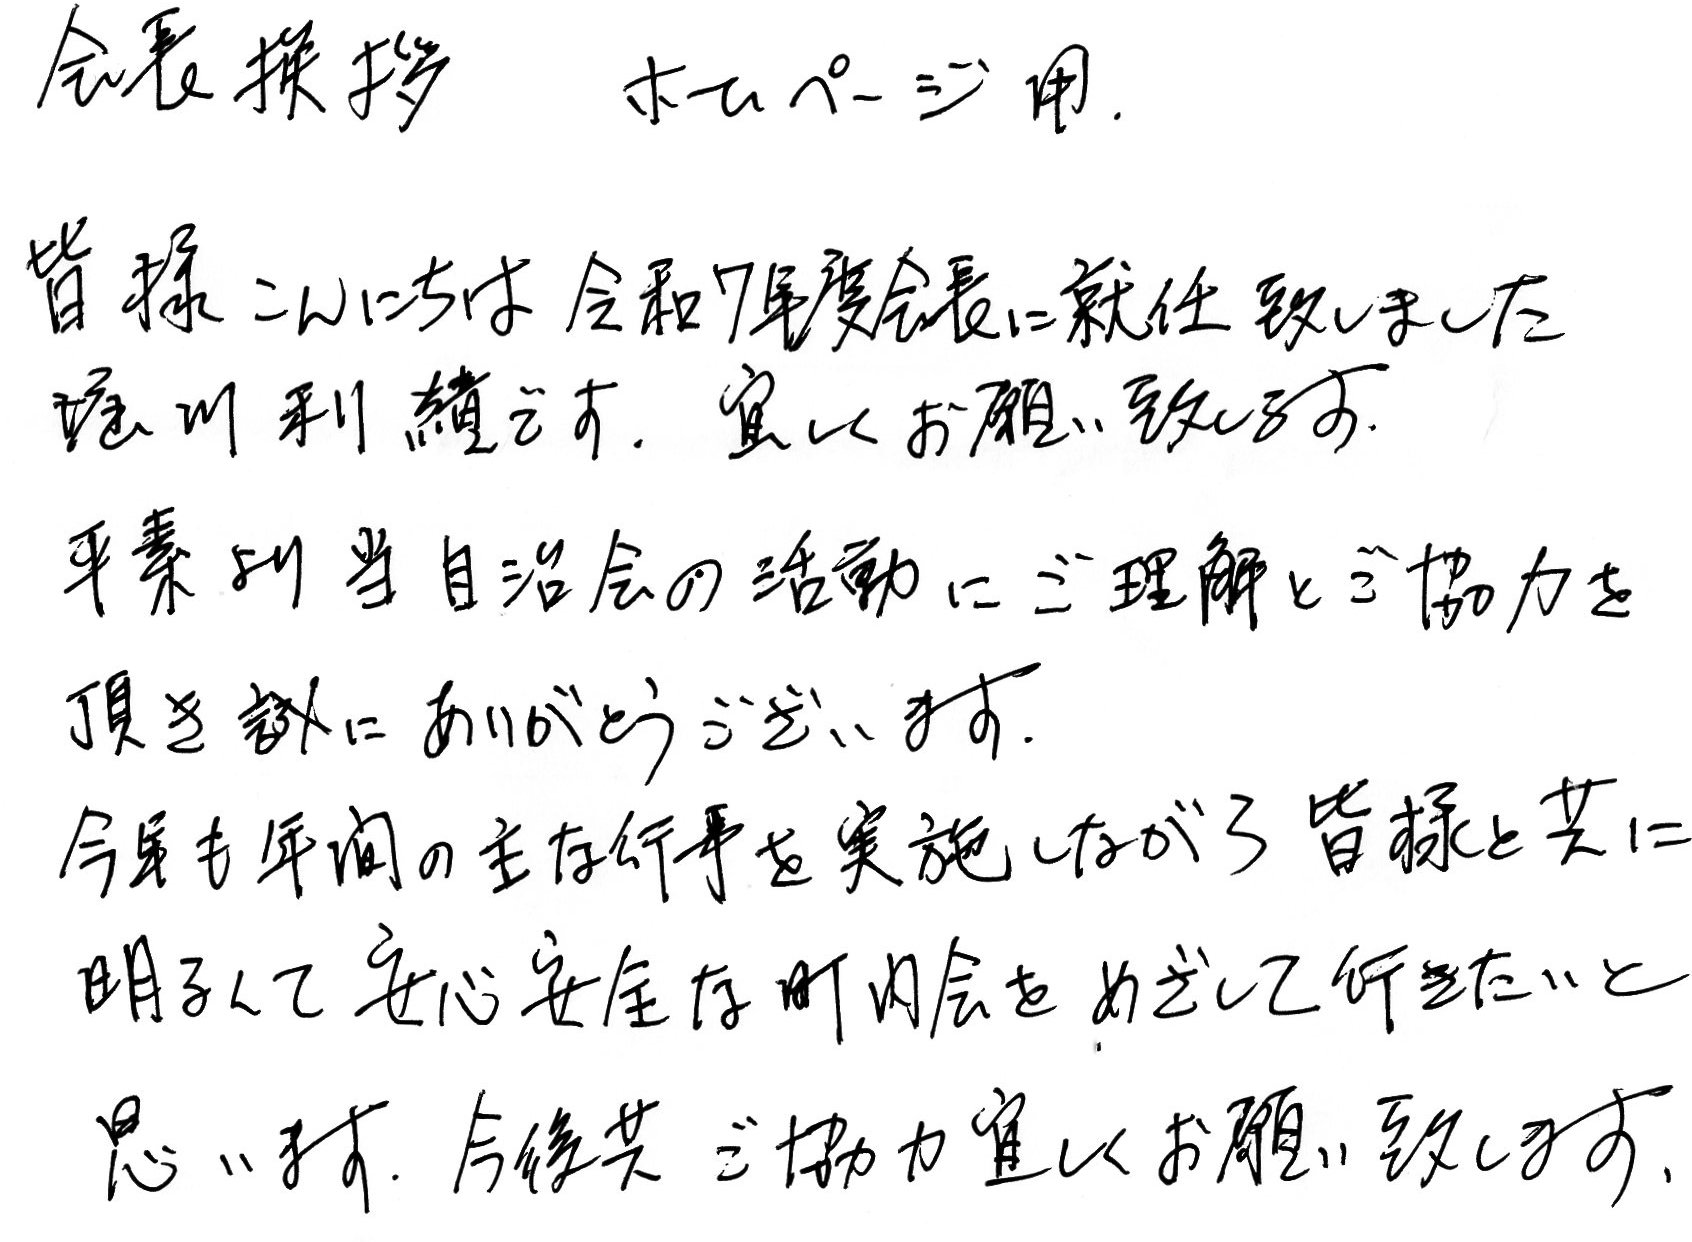 会長挨拶　ホームページ用.
皆様こんにちは 令和7年度会長に就任致しました
堀川利績です. 宜しくお願い致します.
平素より当自治会の活動にご理解とご協力を
頂き誠にありがとうございます.
今年も年間の主な行事を実施しながら皆様と共に
明るくて安心安全な町内会をめざして行きたいと
思います. 今後共ご協力宜しくお願い致します、